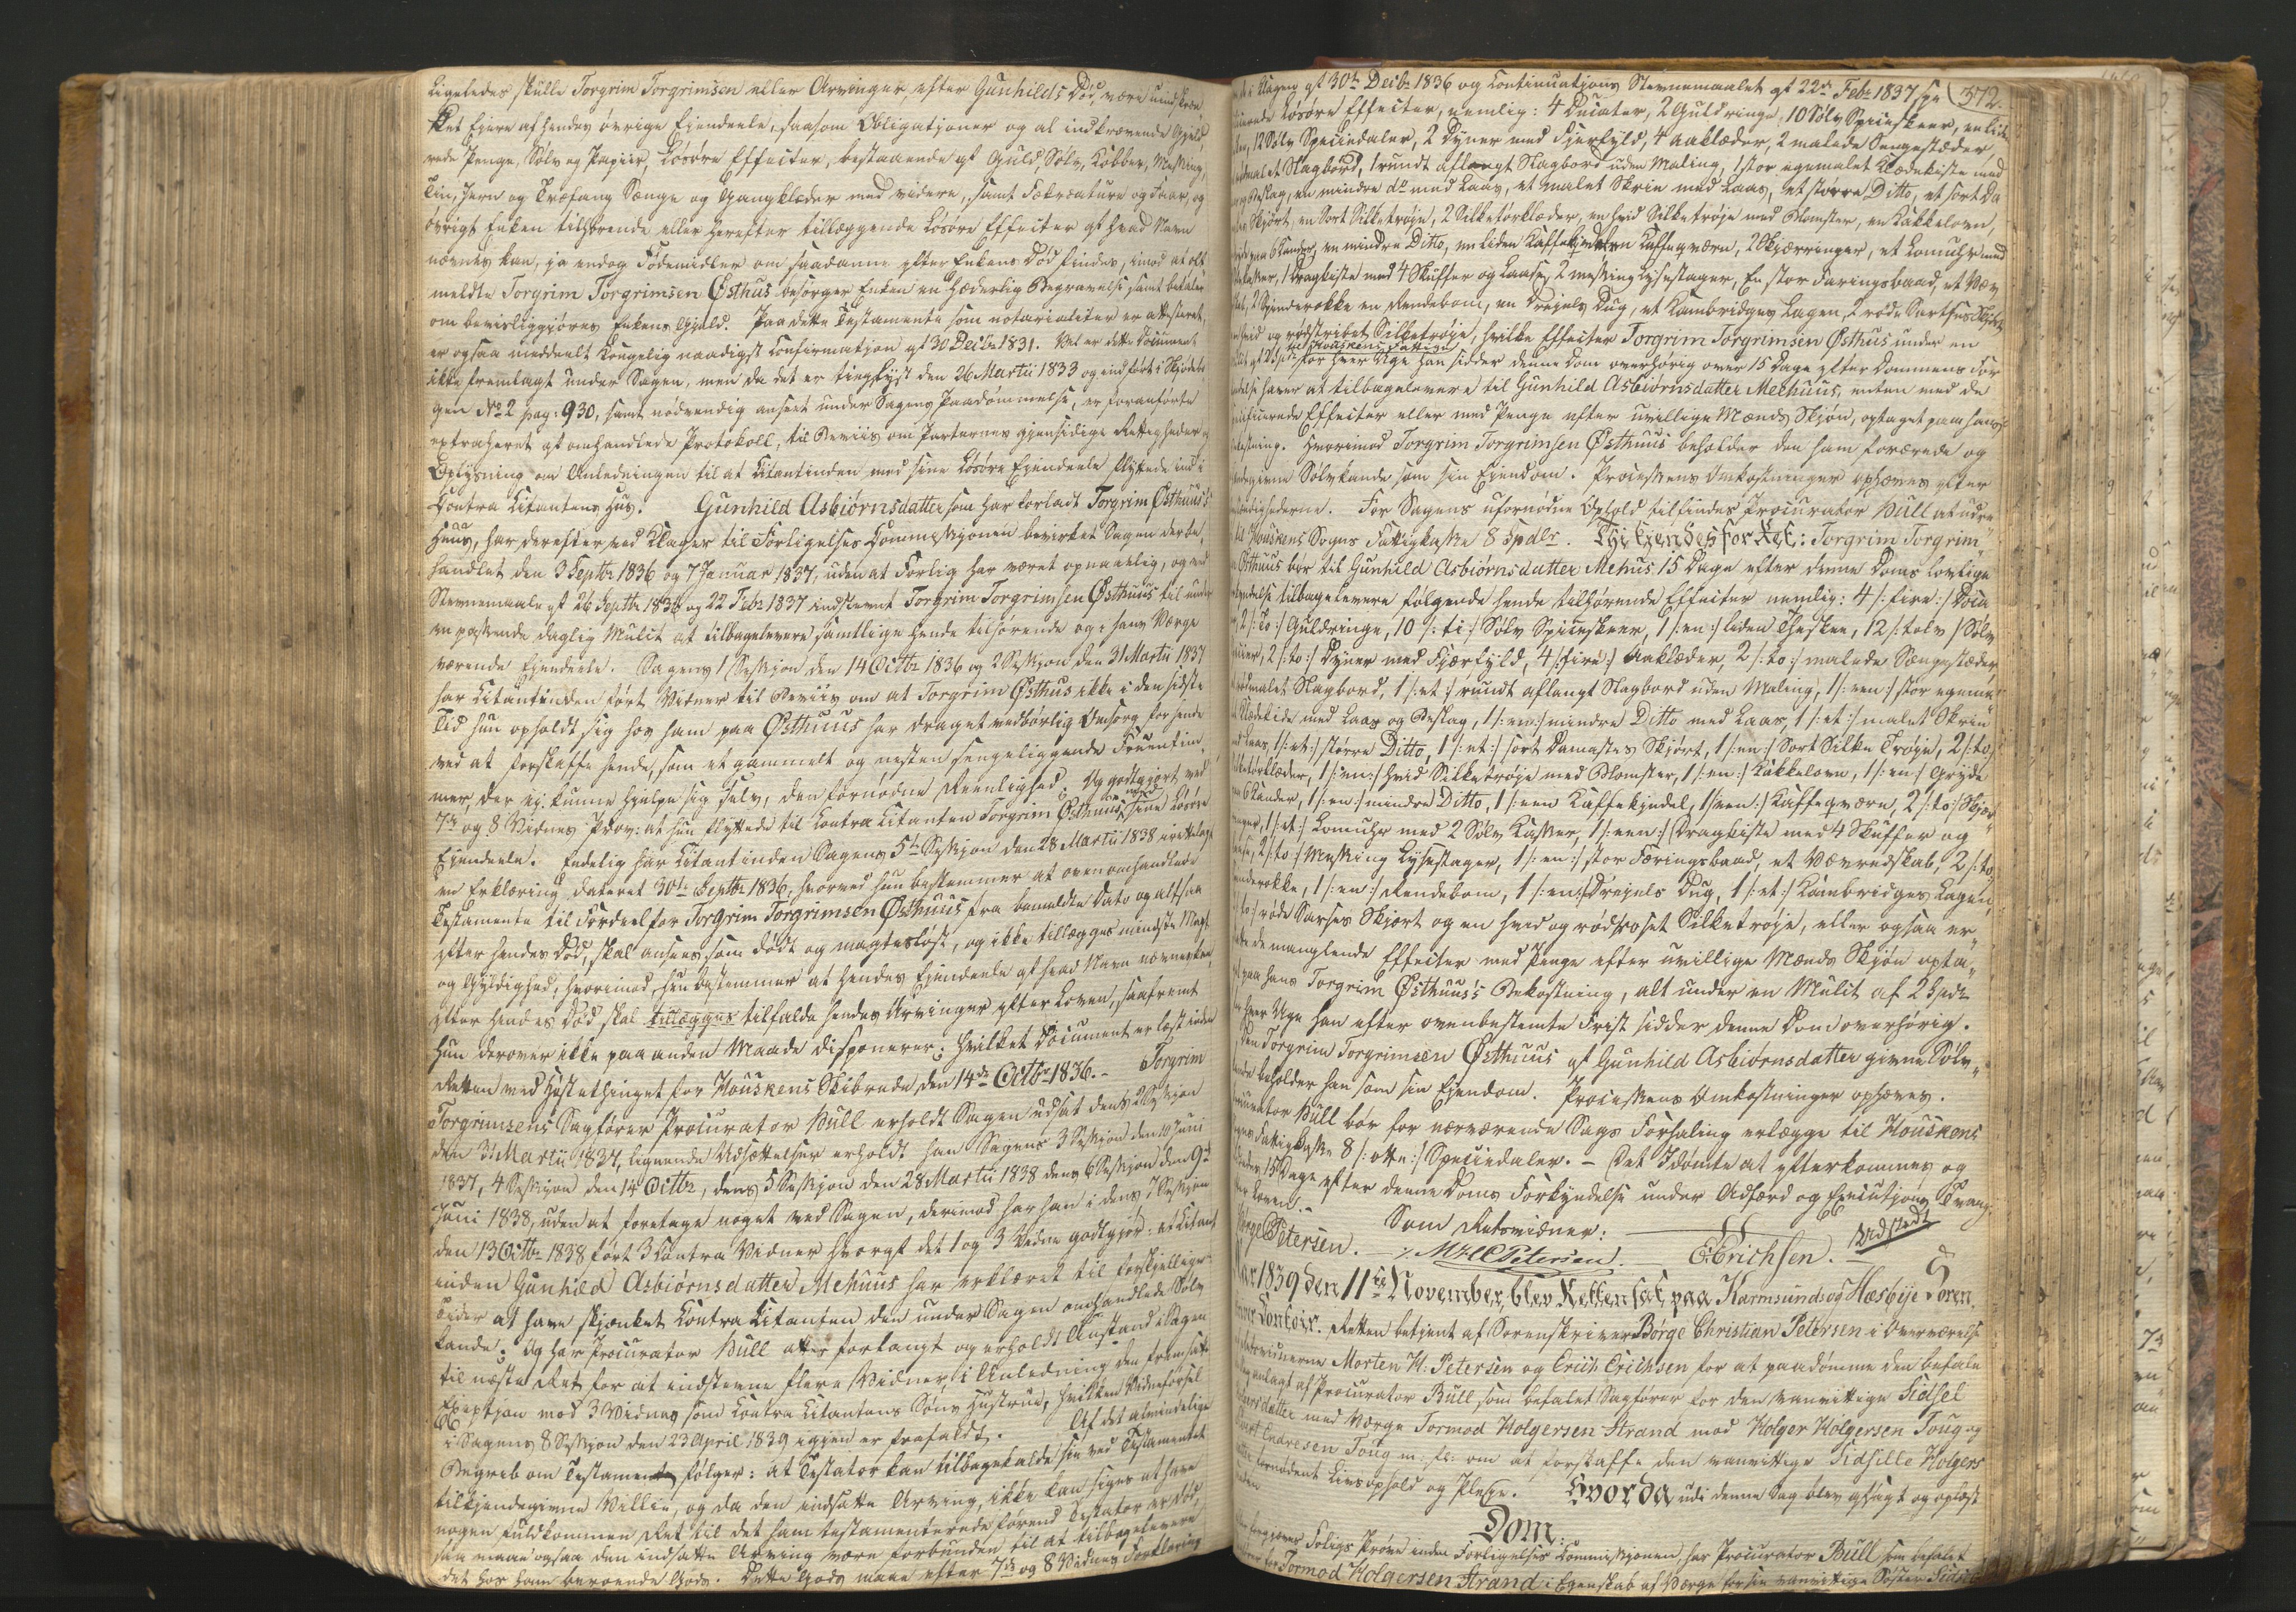 ligeledes skulle Torgrim Torgrimsen eller Arvinger efter Gunhilds Død, være uindskræn
ket Ejere af hendes øvrige Ejendeele, saasom Obligationer og al indkrævende Gjeld,
rede Penge, Sølv og Papiir, Løsøre Effecter, bestaaende af Guld, Sølv, Kobber, Messing,
Tin, Jern og Træfang Senge og Gangklæder med videre, samt Fækreature og Faar, og
øvrigt Enken tilhørende eller herefter tillæggende Løsøre Effecter af hvad Navn
nævnes kan, ja endog Fødemidler om saadanne efter Enkens Død findes, imod at oft
meldte Torgrim Torgrimsen Østhus besørger Enken en hæderlig Begravelse samt betaler
om bevisliggjøres Enkens Gjeld. Paa dette Testamente som notarialiter er attesteret,
er ogsaa meddeelt Kongelig naadigst Confirmation af 30 Decbr 1831. Vel er dette Document
ikke fremlagt under Sagen, men da det er tinglyst den 26 Martii 1833 og indført i Skjøde
gen No 2 pag: 930, samt nødvendig anseet under Sagens Paadømmelse, er foranførte
extraheret af omhandlede Protokoll, til Beviis om Parternes gjensidige Rettigheder og
Oplysning om Anledningen til at Citantinden med sine Løsøre Ejendeele flyttede ind i
Contra Citantens Hus. Gunhild Asbiørnsdatter som har forladt Torgrim Østhuus's
Huus, har derefter ved Klager til Forligelses Commissionen bevirket Sagen der be-
handlet den 3 Septbr 1836 og 7 Januar 1837, uden at Forlig har været opnaaelig, og ved
Stevnemaale af 26 Septbr 1836 og 22 Febr 1837 indstevnt Torgrim Torgrimsen Østhuus til under
en passende daglig Mulct at tilbagelevere samtlige hende tilhørende og i hans Værge
værende Ejendeele. Sagens 1 Session den 14 Octbr 1836 og 2 Session den 31 Martii 1837
har Citantinden ført Vidner til Beviis om at Torgrim Østhus ikke i den sidste
Tid hun opholdt sig hos ham paa Østhuus har draget vedbørlig Omsorg for hende
ved at forskaffe hende, som et gammelt og næsten sengeliggende Fruentim-
mer, der ej kunne hjelpe sig selv, den fornødne Reenlighed: Og godtgjort ved
7de og 8 Vidnes Prov: at hun flyttede til Contra Citanten Torgrim Østhuus ind med sine Løsøre
Ejendeele. Endelig har Citantinden Sagens 5te Session den 28 Martii 1838 irettelagt
en Erklæring dateret 30te Septbr 1836, hvorved hun bestemmer at ovenomhandlede
Testamente til Fordeel for Torgrim Torgrimsen Østhuus fra bemeldte Dato og altsaa
efter hendes Død, skal ansees som dødt og magtesløst, og ikke tillægges mindste Magt
og Gyldighed, hvorimod hun bestemmer at hendes Ejendeele af hvad Navn nævnes kan,
efter hendes Død skal tillægges tilfalde hendes Arvinger efter Loven, saafremt
hun derover ikke paa anden Maade disponerer: hvilket Document er læst inden
Retten ved Høstethinget for Houskens Skibrede den 14de Octbr 1836. – Torgrim
Torgrimsens Sagfører Procurator Bull erholdt Sagen udsat dens 2 Session
den 31 Martii 1837, lignende Udsættelser erholdt han Sagens 3 Session den 10 Juni
1837, 4 Session den 14 Octbr, dens 5 Session den 28 Martii 1838 dens 6 Session den 9de
Juni 1838, uden at foretage noget ved Sagen, derimod har han i dens 7 Session
den 13 Octbr 1838 ført 3 Contra Vidner hvoraf det 1 og 3 Vidne godtgjør: at Citant
inden Gunhild Asbiørnsdatter Mehuus har erklæret til forskjellige
Tider at have skjenket Contra Citanten den under Sagen omhandlede Sølv
kande: Og har Procurator Bull atter forlangt og erholdt Anstand i Sagen
til næste Ret for at indstevne flere Vidner, i Anledning den fremsatte
Exeption mod 3 Vidnes som Contra Citantens Søns Hustrue, hvilken Vidneførsel
i Sagens 8 Session den 23 April 1839 igjen er frafaldt. Af det almindelige
Begreb om Testament følger: at Testator kan tilbagekalde sin ved Testamentet
tilkjendegivne Villie, og da den indsatte Arving, ikke kan siges at have
nogen fuldkommen Ret til det ham testamenterede førend Testator er død,
saa maae ogsaa den indsatte Arving være forbunden til at tilbagelevere
det hos ham beroende Gods. Dette Gods maae efter 7de og 8 Vidnes Forklaring
372.
i Sagen af 30te Decbr 1836 og Continuations Stevnemaalet af 22de Febr 1837, spe
cificerede Løsøre Effecter, nemlig: 4 Ducater, 2 Guldringe, 10 Sølv Spiseskeer, en liden
12 Sølv Speciedaler, 2 Dyner med Fjerfyld, 4 Aaklæder, 2 malede Sengestæder
malet Slagbord, 1 rundt aflangt Slagbord uden Maling, 1 stor egemalet Klædekiste med
og Beslag, en mindre do med Laas, et malet Skrin med Laas, et større Ditto, et sort Da
Skjørt, en Sort Silketrøje, 2 Silketørklæder, en hvid Silketrøje med Blomster, en Kakkelovn,
paa 6 Kander, en mindre Ditto, en liden Kaffekjedel en Kaffeqværn, 2 Skjærringer, et Lomuhr med
Kasser, 1 Dragkiste med 4 Skuffer og Laase, 2 messing Lysestager, En stor Færingsbaad, et Væv
2 Spinderokke en Rendebom, en Drejels Dug, et Kambridges Lagen, 2 røde Sartses Skjørt
hvid og rødstribet Silketrøje, hvilke Effecter Torgrim Torgrimsen Østhuus under en
til Houskens Fattige
for hver Uge han sidder denne Dom overhørig over 15 Dage efter Dommens For
kyndelse haver at tilbagelevere til Gunhild Asbiørnsdatter Meehuus, enten med de
specificerede Effecter eller med Penge efter uvillige Mænds Skjøn, optaget paa hans
bekostning. Hvorimod Torgrim Torgrimsen Østhuus beholder den ham forærede og
Sølvkande som sin Ejendom. Processens Omkostninger ophæves efter
Omstændighederne. For Sagens ufornødne Ophold tilfindes Procurator Bull at udre
til Houskens Sogns Fattigkasse 8 Spdlr. Thi Kjendes for Ret: Torgrim Torgrim-
Østhuus bør til Gunhild Asbiørnsdatter Mehus 15 Dage efter denne Doms lovlige
forkyndelse tilbagelevere følgende hende tilhørende Effecter nemlig: 4 /: fire :/ Duca
2 /: to :/ Guldringe, 10 /: ti :/ Sølv Spiseskeer, 1 /: en :/ liden Theskee, 12 /: tolv :/ Sølv
2 /: to :/ Dyner med Fjærfyld, 4 /: fire :/ Aaklæder, 2 /: to :/ malede Sængestæder,
malet Slagbord, 1 /: et :/ rundt aflangt Slagbord uden Maling, 1 /: een :/ stor egema
Klædekiste med Laas og Beslag, 1 /: en :/ mindre Ditto med Laas, 1 /: et :/ malet Skrin
Laas, 1 /: et :/ større Ditto, 1 /: et :/ sort Damaskes Skjørt, 1 /: en :/ Sort Silke Trøje, 2 /: to
Silketørklæder, 1 /: en :/ hvid Silketrøje med Blomster, 1 /: en :/ Kakkelovn, 1 /: en :/ Gryde
6 Kander, 1 /: en :/ mindre Ditto, 1 /: een Kaffekjedel, 1 /: een :/ Kaffeqværn, 2 /: to :/ Skjær
1 /: et :/ Lomuhr med 2 Sølv Kasser, 1 /: een :/ Dragkiste med 4 Skuffer og
2 /: to :/ Messing Lysestager, 1 /: en :/ stor Færingsbaad, et Vævredskab, 2 /: to
Spinderokke, 1 /: en :/ Rendebom, 1 /: en :/ Drejels Dug, 1 /: et :/ Kambridges Lagen,
to :/ røde Sarses Skjørt og en hvid og rødroset Silketrøje, eller ogsaa er-
de manglende Effecter med Penge efter uvillige Mænds Skjøn opta-
paa hans Torgrim Østhuus's Bekostning, alt under en Mulct af 2 Spdr
hver Uge han efter ovenbestemte Frist sidder denne Dom overhørig.
Den Torgrim Torgrimsen Østhuus af Gunhild Asbiørnsdatter givne Sølv-
kande beholder han som sin Ejendom. Processens Omkostninger ophæves.
Procurator Bull bør for nærværende Sags Forhaling erlægge til Houskens
Fattigkasse 8 /: otte :/ Speciedaler. – Det Idømte at efterkommes og
15 Dage efter denne Doms Forkyndelse under Adfærd og Executions Tvang
Loven. –
Som Retsvidner:
Petersen. M H C Petersen. E. Erichsen. Vidstedt
Aar 1839 den 11te November, blev Retten sat paa Karmsunds og Hesbye Soren
skriver Contoir. Retten betjent af Sorenskriver Børge Christian Petersen i Overværelse
Morten H. Petersen og Erich Erichsen for at paadømme den befale
anlagt af Procurator Bull som befalet Sagfører for den vanvittige Sidsel
Holgersdatter med Værge Tormod Holgersen Strand mod Holger Holgersen Toug og
Endresen Toug m. fl: om at forskaffe den vanvittige Sidsille Holgers
fornødent Livsophold og Pleje. Hvorda udi denne Sag blev afsagt og oplæst
Dom:
Forligs Prøve inden Forligelses Commissionen, har Procurator Bull som befalet
for Tormod Holgersen Strand i Egenskab af Værge for sin vanvittige Søster Sidsel